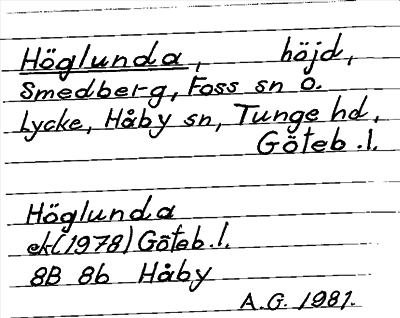 Höglunda, höjd,
Smedberg, Foss sn o.
Lycke, Håby sn, Tunge hd,
Göteb.l.
Höglunda
ek(1978) Göteb.l.
8B 8b Håby
A.G. 1981.